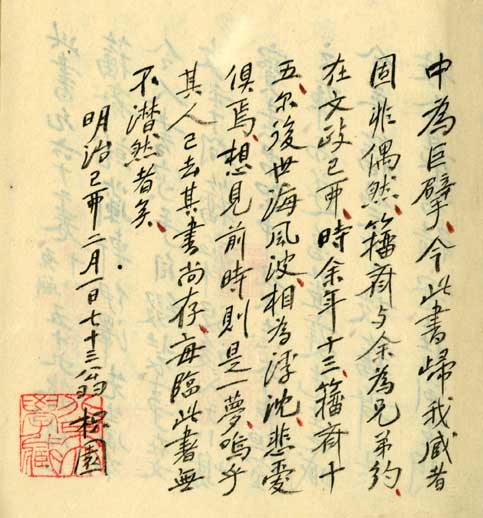 中為巨擘、今此書歸我臧者
固非偶然、籀斎与余為兄弟約、
在文政己卯、時余年十三、籀斎十
五、尓後世海風波、相為浮沈、悲憂
倶焉、想見前時、則是一夢、嗚乎
其人已去、其書尚存、毎臨此書、無
不潸然者矣、
明治己卯二月一日七十三翁枳園